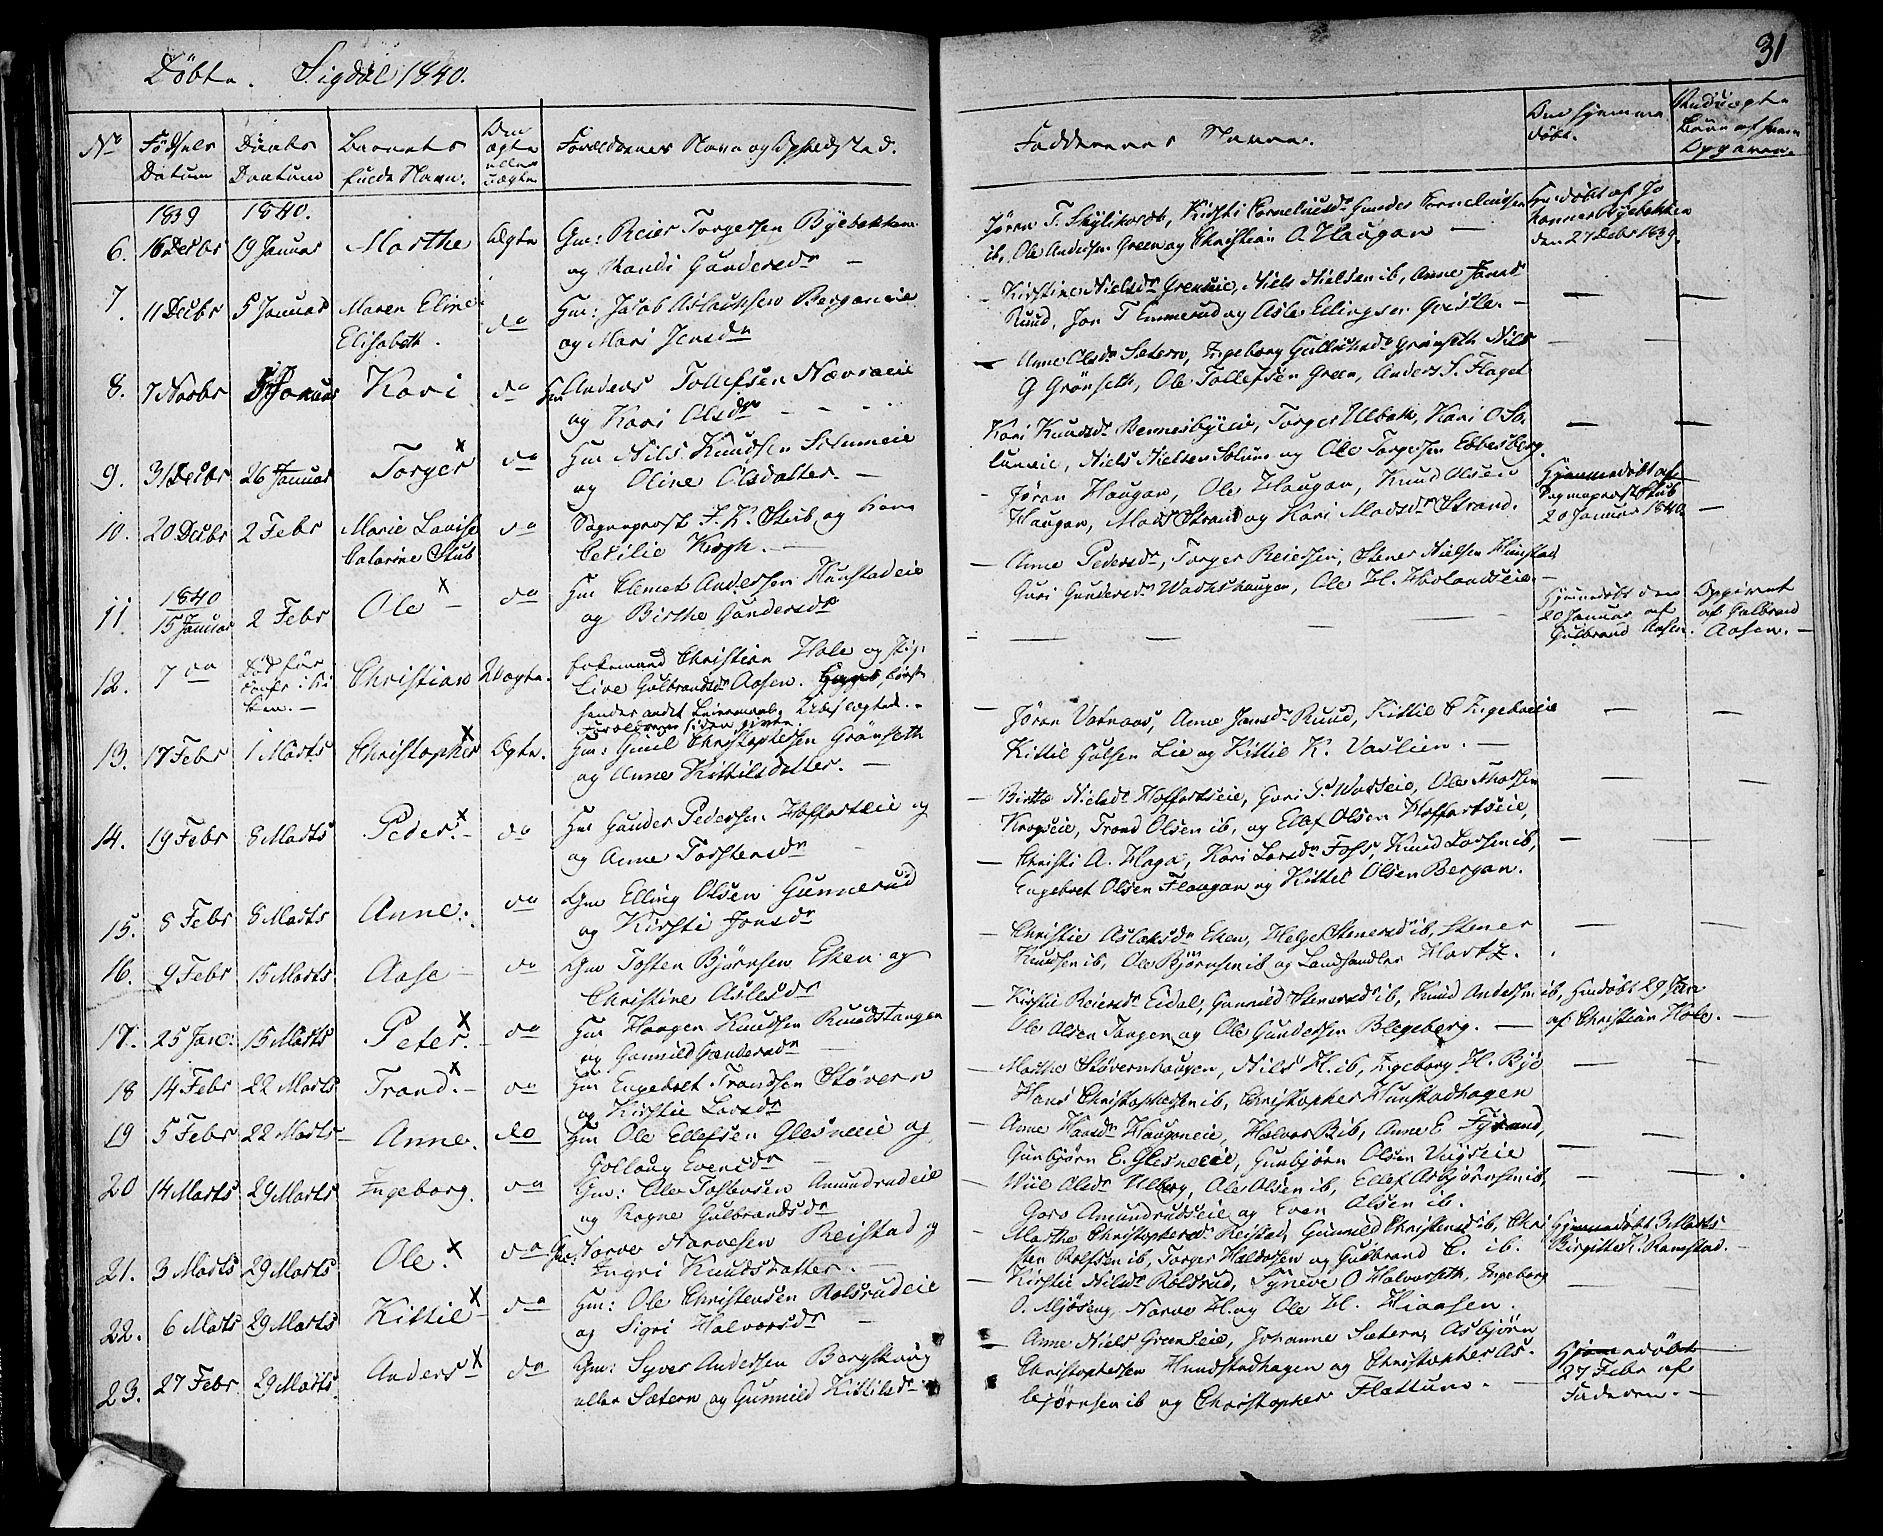 Döbte. Sigdal 1840.
31
No
Födsels Datum
Daabs Daatum
Barnets fulde Navn.
Om ægte eller uægte
Forældrenes Navn og Opholdsted.
Faddernes Navne.
Om hjemme döbt.
Uuægte Börn af hvem Opgivne.
1839 1840.
6. 16 Decbr 19 Januar Marthe Ægte Gm: Reier Torgersen Byebakken
og Randi Gundersdr —
Jöran T. Kirsti Corneliusdr Gunder Corneliusen
ib, Ole Andersen Green og Christian O. Haugan —
Hmdöbt af Jo
hannes Byebakken
den 27 Debr 1839.
7. 11 Decbr 5 Januar Maren Eline Elisabeth. do Hm: Jacob Aslachsen Berganeie
og Mari Jensdr
Kirstine Nielsdr Grenseie, Niels Nielsen ib, Anne Jansd
Ruud, Jon T Emmerud og Asle Ellingsen —
8. 7 Novbr 5 Januar Kari do Hm Anders Tollefsen Nævraeie
og Kari Olsdr
— Anne Olsdr Sætern, Ingeborg Gulliksdr Grönseth Nils
G Grönseth, Ole Tollefsen Green, Anders S. Flaget
9. 31 Decbr 26 Januar Torger x do Hm Nils Knudsen Solumeie
og Oline Olsdatter. —
Kari Knudsdr Bennesbyeie, Torger Ulbak, Kari O So
lumeie, Niels Nielsen Solum og Ole Torgersen Ebbesberg.
10. 20 Decbr 2 Febr Marie Lovise Catarine Stub do Sogneprest F. K. Stub og Kone
Cecilie Krogh. —
Jöran Haugan, Ole Haugan, Knud Olsen
Haugan, Mads Strand og Kari Madsdr Strand.
Hjemmedöbt af
Sogneprost Stub
20 Januar 1840.
1840
11. 15 Januar 2 Febr Ole x do Hm Clemet Andersen Hunstadeie
og Birthe Gundersdr
— Anne Pedersdr, Torger Reiersen, Stener Nielsen Hunstad
Guri Gundersdr Ole H. Hovlandseie. —
12. 7 do Död för Christian Uægte. Christian Hole og Pig:
Live Gulbrandsdr Aasen.
hendes andet Leiermaal,
Forældrene siden givte.
Hjemmedöbt den
20 Januar af
Gulbrand Aasen.
Opgivet
af Gulbrand
Aasen. —
13. 17 Febr 1 Marts Christopher x Ægte. Hm: Christophersen Grönseth
og Anne Kittilsdatter. —
— Jöran Vatnaas, Anne Jansdr Ruud, Kittil C
Kittil Gulsen Lie og Kittil K. Vaslien. —
14. 19 Febr 8 Marts Peder. x do Hm Gunder Pedersen Hoffartseie og
og Anne Torstensdr
— Birthe Nielsdr Hoffartseie, Guri Ole Thorsen
Kragseie, Trond Olsen ib, og Ellef Olsen Hoffartseie,
15. 8 Febr 8 Marts Anne. do Gm Elling Olsen Gunnerud
og Kirsti Jonsdr
— Christi A. Haga, Kari Larsdr Foss, Knud Larsen ib,
Engebret Olsen Flaugan og Kittil Olsen Bergan.
16. 9 Febr 15 Marts Aase — do Gm Tosten Björnsen Eken og
Christine Aslesdr
— Christie Aslaksdr Eken, Helge Stenersd ib, Stener
Knudsen ib, Ole Björnsen ib og Landhandler Hartz.
17. 25 Jan: 15 Marts Peter. x do Hm Haagen Knudsen Ruudstangen
og Gunnild Gundersdr
— Kirstie Reiersdr Eidal, Gunnild Stenersdr ib, Knud Andersen ib,
Ole Olsen Tangen og Ole Gundersen Blegeberg. —
Hmdöbt 29 Jan
af Christian Hole. —
18 14 Febr 22 Marts Trond. x do Hm Engebret Trondsen Stövern
og Kirstie Larsdr
— Marthe Stövernhaugen, Nils H. ib, Ingeborg H. Bye
Hans Christophersen ib, Christopher Hunstadhagen
19 5 Febr 22 Marts Anne. do Hm Ole Ellefsen Glesneeie og
Gollaug Evensdr
— Anne Hansdr Haugneie, Halvor B ib, Anne E
Gunbjörn E. Glesneeie, Gunbjörn Olsen
20 14 Marts 29 Marts Ingeborg. do Gm: Ole Tostensen Amundrudeie
og Ragne Gulbrandsdr
— Olsdr Ulberg, Ole Olsen ib, Ellef Asbjörnsen ib,
Goro Amundrudseie og Even Olsen ib.
21. 3 Marts 29 Marts Ole. x do Gm: Narve Narvesen Reistad og
Ingri Knudsdatter. —
— Marthe Christophersdr Reistad, Gunnild Christensd ib, Chri
sten Rolfsen ib, Torger Halvorsen og Gulbrand C. ib.
Hjemmedöbt 3 Marts
Birgitte K. Ramstad. —
22. 6 Marts 29 Marts Kittil x do Hm: Ole Christensen Rolsrudeie
og Sigri Halvorsdr
— Kirstie Nilsdr Rolsrud, Syneve O Halvorseth, Ingeborg
O. Mjöseng, Narve H. og Ole H. Hiaasen.
23. 27 Febr. 29 Marts. Anders x do Gm: Syver Andersen Bergskoug
eller Sætern og Gunnild Kittilsdr
— Anne Niels Greenseie, Johanne Sætern, Asbjörn
Christophersen Hunstadhagen og Christopher As-
björnsen ib og Christopher Flattum. —
Hjemedöbt
27 Febr af
Faderen. —